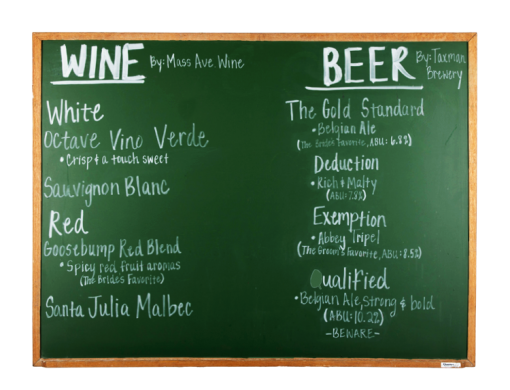 WINE By: Mass Ave Wine
White
Octave Vino Verde
• Crisp & a touch sweet
Sauvignon Blanc
Red
Goosebump Red Blend
• Spicy red fruit aromas
(The Brides Favorite)
Santa Julia Malbec
BEER By: Taxman
Brewery
The Gold Standard
• Belgian Ale
(The Favorite, ABU: 6.8%)
Deduction
• Rich & Malty
(ABU: 7.8%)
Exemption
• Abbey Tripel
(The Groom's Favorite, ABU: 8.5%)
Qualified
• Belgian Ale, strong & bold
(ABU: 10.2%)
-BEWARE-